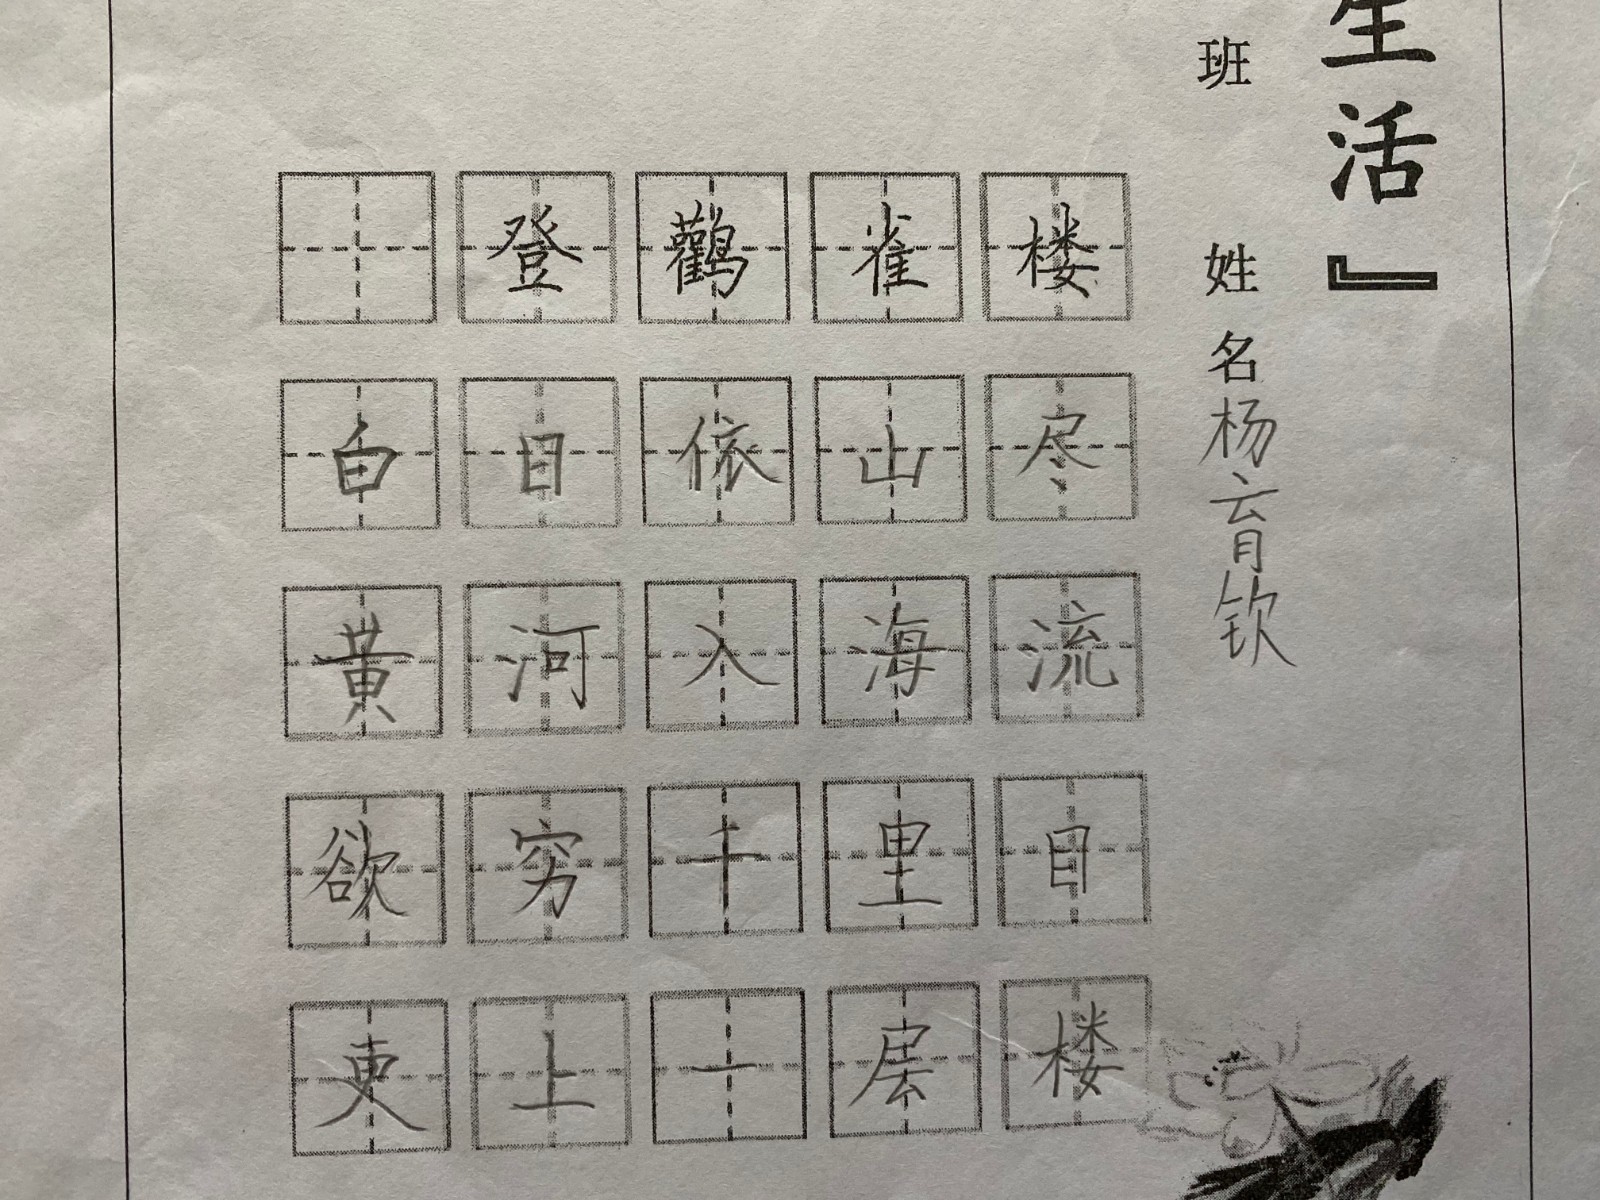 登鸛雀楼
白日依山尽
黄河入海流
欲穷千里目
更上一层楼
生活』
班 姓名杨育钦